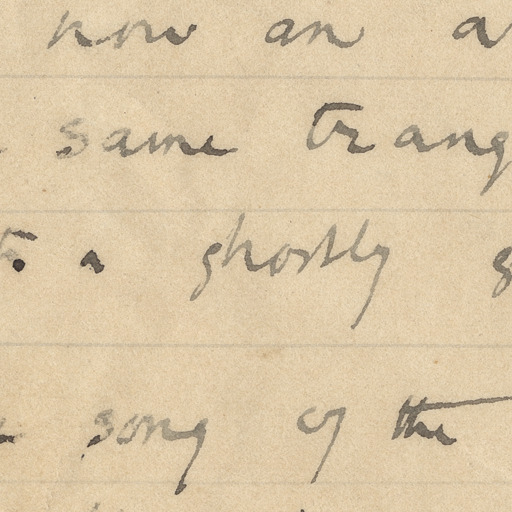 now an a
same tranq
a ghostly g
song of the